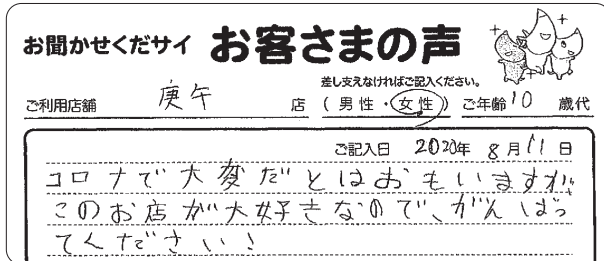 お聞かせくだサイ お客さまの声
差し支えなければご記入ください。
ご利用店舗 庚午 店 (男性・女性) ご年齢10歳代
ご記入日 2020年8月11日
コロナで大変だとはおもいますが、
このお店が大好きなので、がんばっ
てください!